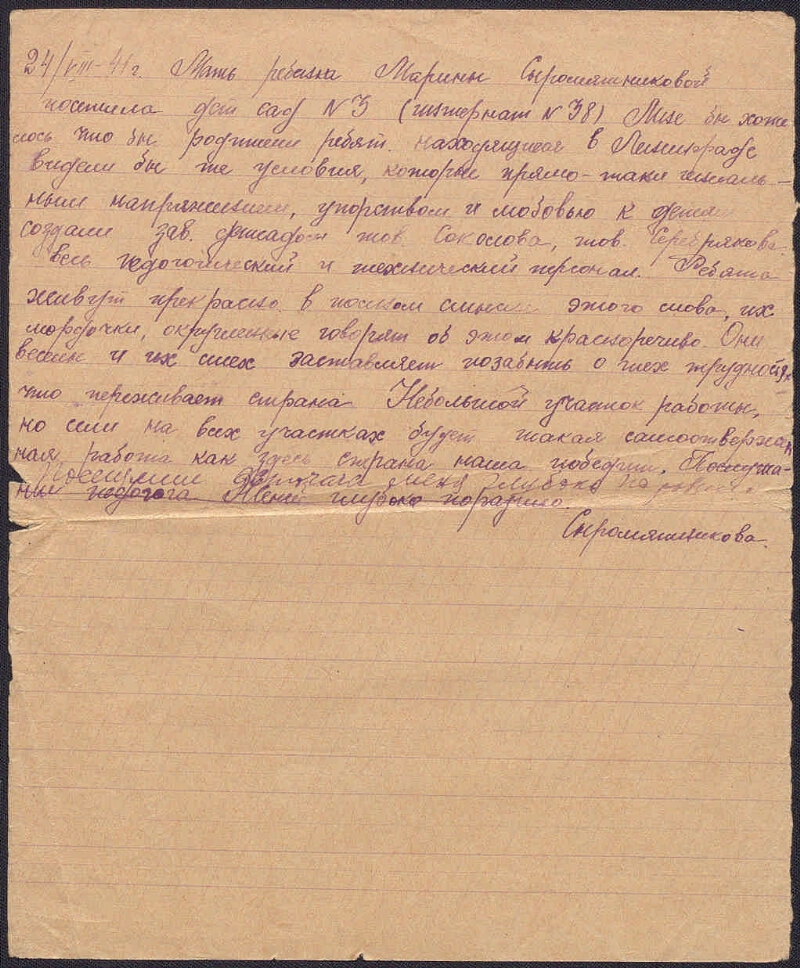 24/VIII-41 г. Мать ребенка Марины Сыромятниковой
посетила дет сад N 3 (интернат N 38). Мне бы хоте
лось что бы родители ребят. находящиеся в Ленинграде
видели бы те условия, которые прямо-таки
ным напряжением, упорством и любовью к детям
создали зав. детсадом тов. Соколова, тов. Серебрякова
весь педогогический и технический персонал. Ребята
живут прекрасно в полном смысле этого слова, их
мордочки, округленные говорят об этом красноречиво. Они
веселы и их смех заставляет позабыть о тех трудностях,
что переживает страна. Небольшой участок работы,
но если на всех участках будет такая самоотвержен
ная работа как здесь страна наша победит.
Посещение меня глубоко
педогога меня глубоко поразило.
Сыромятникова.